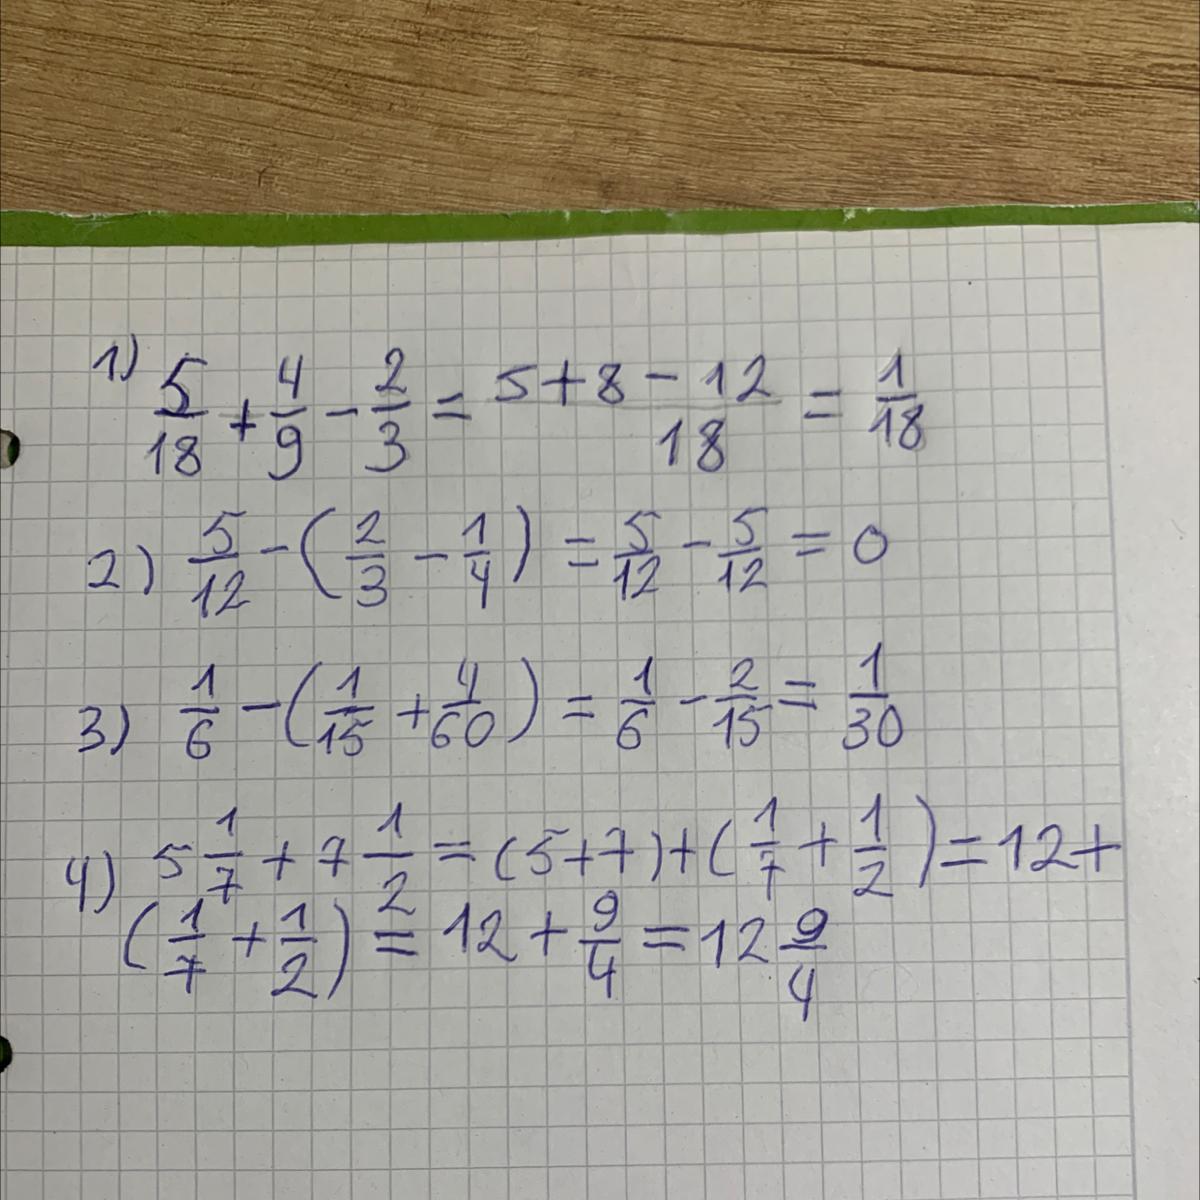 1) 5/18 + 4/9 - 2/3 = (5+8-12)/18 = 1/18
2) 5/12 - (2/3 - 1/4) = 5/12 - 5/12 = 0
3) 1/6 - (1/15 + 4/60) = 1/6 - 2/15 = 1/30
4) 5 1/7 + 7 1/2 = (5+7) + (1/7 + 1/2) = 12 +
(1/7 + 1/2) = 12 + 9/4 = 12 9/4